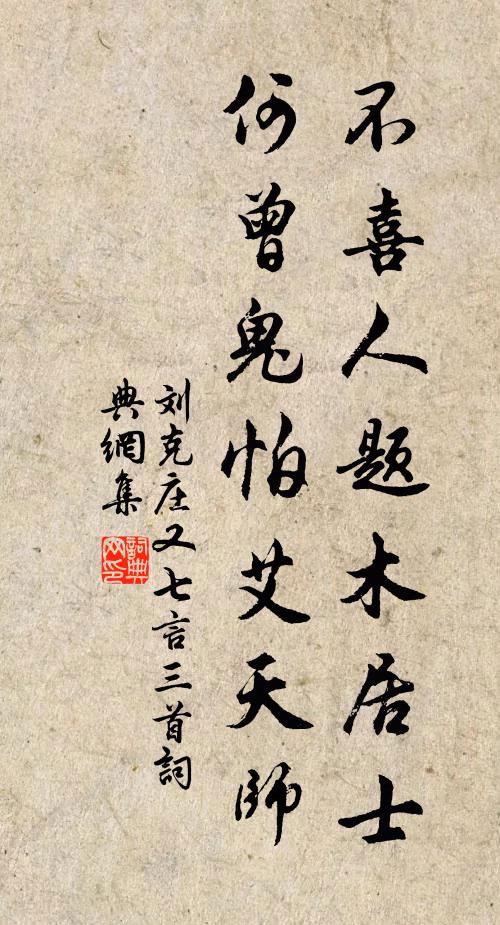 不喜人题木居士
何曾鬼怕艾天师
刘克庄又七言三首詞
典網集
詞典網印